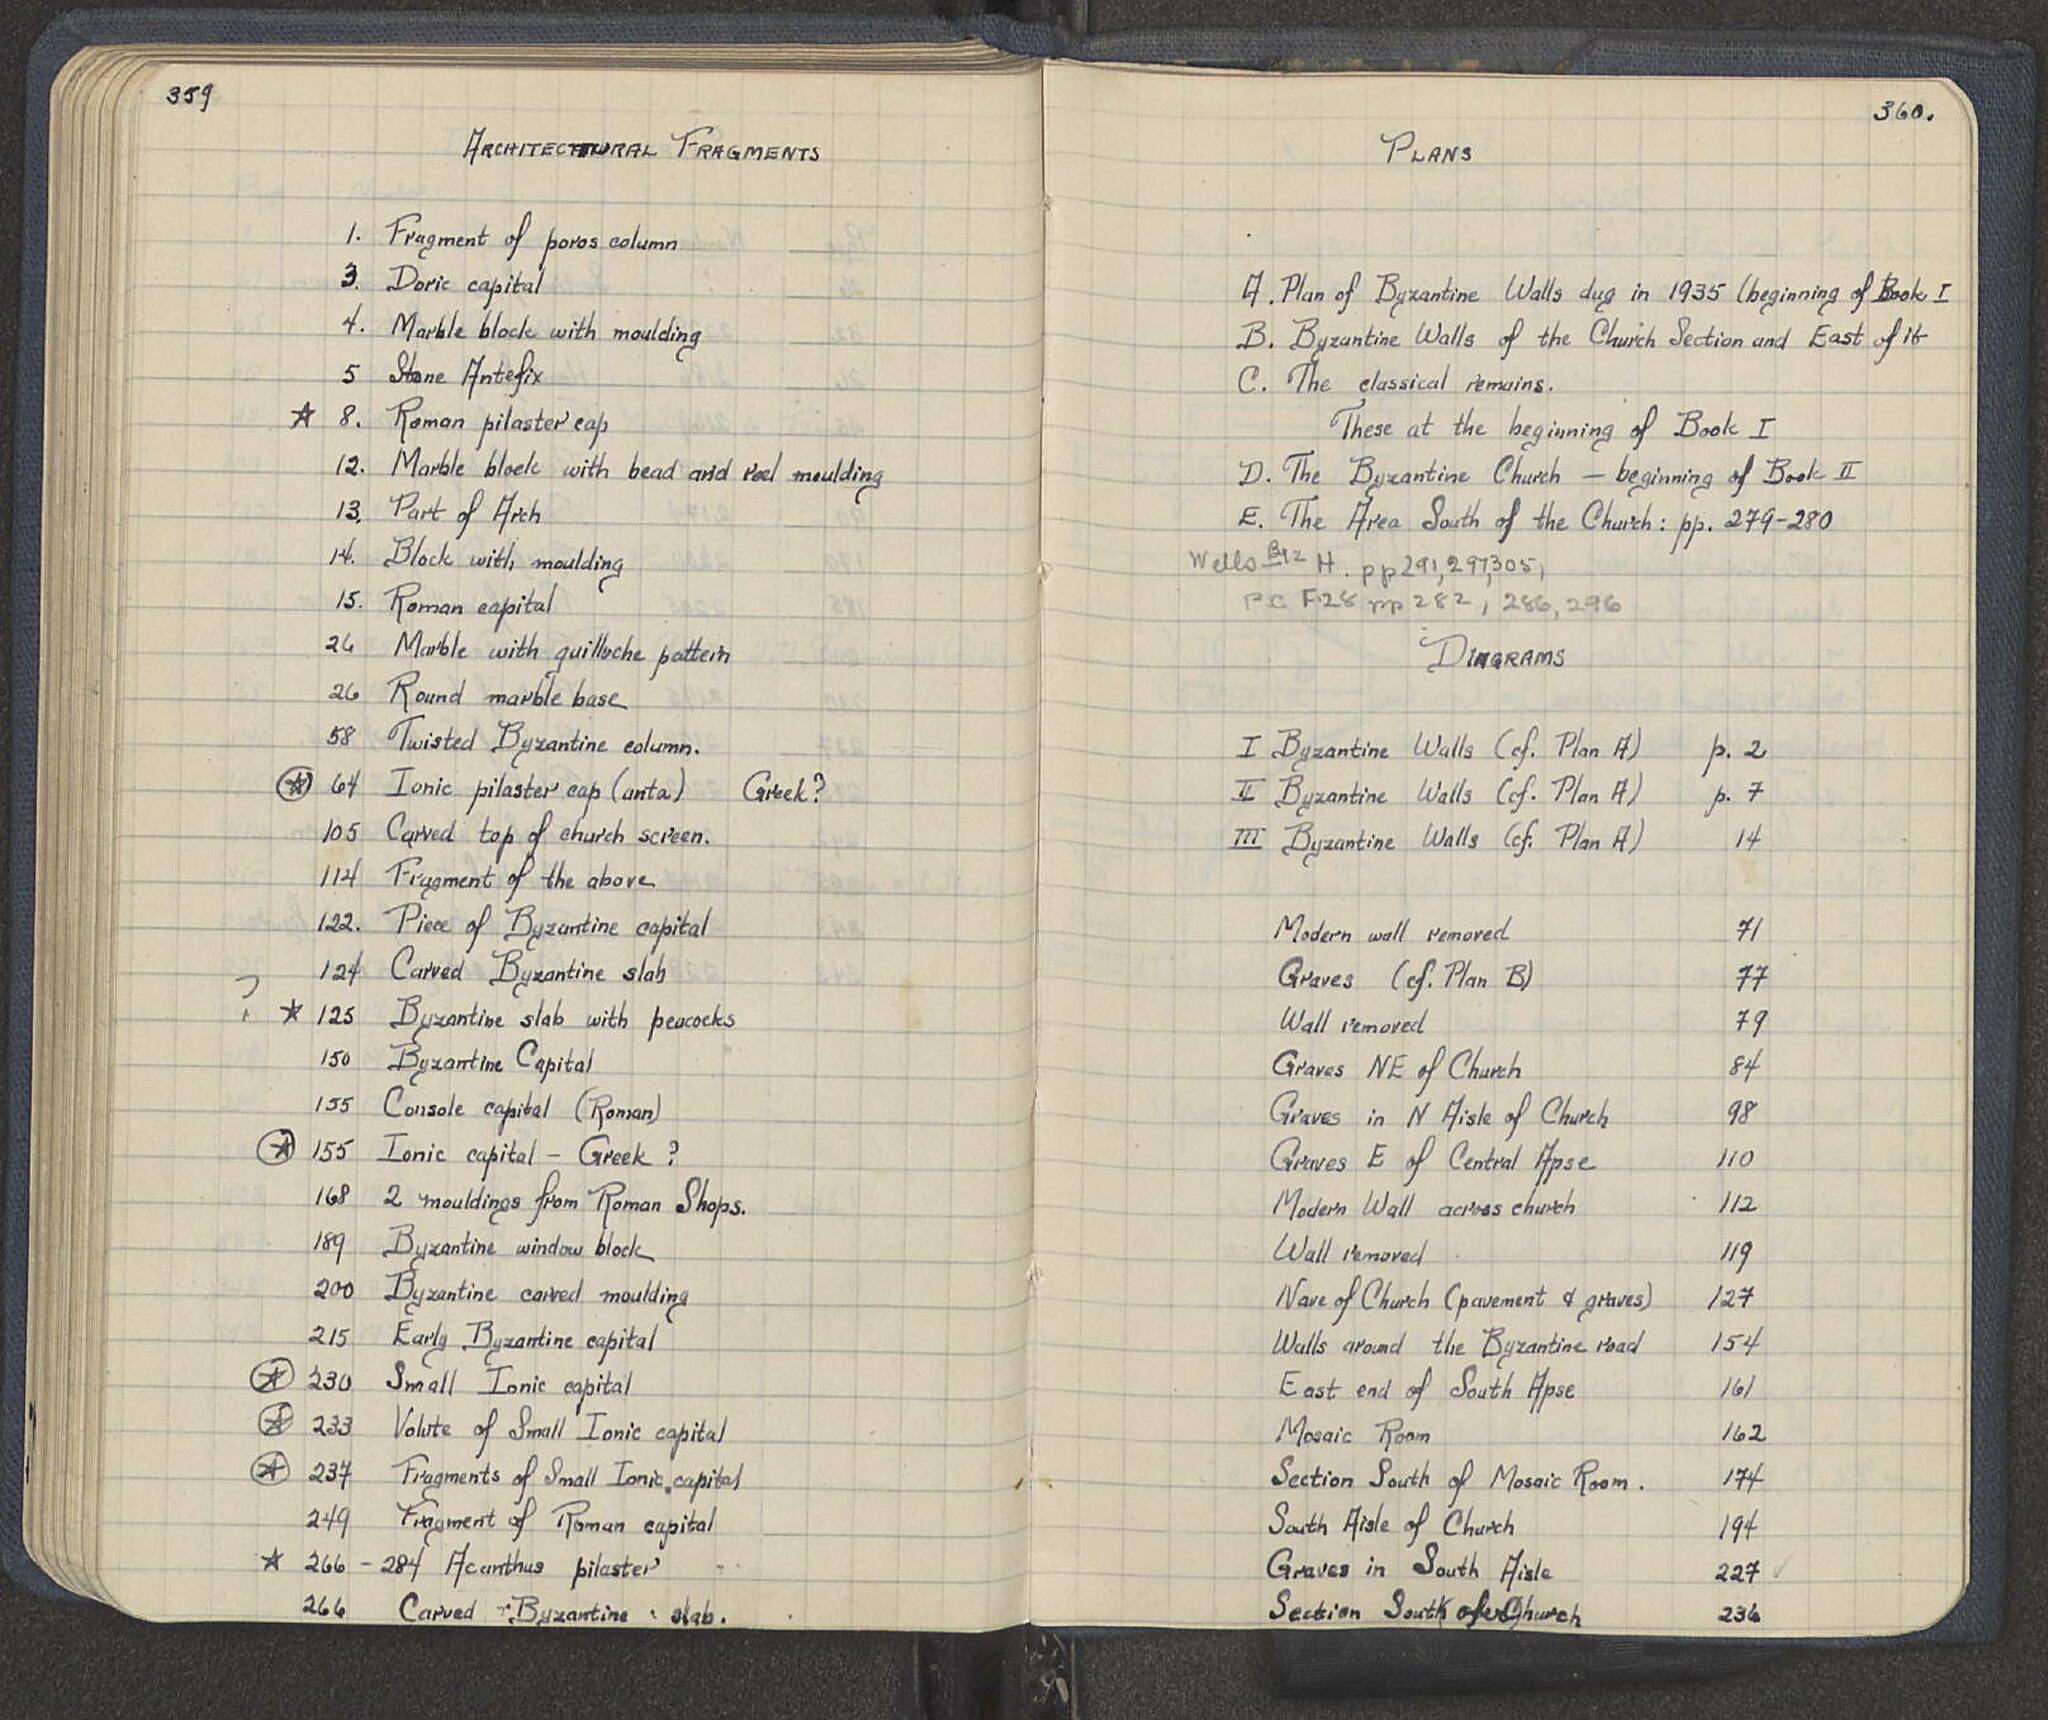 359
ARCHITECTURAL FRAGMENTS
1. Fragment of poros column
3. Doric capital
4. Marble block with moulding
5 Stone Antefix
☆ 8. Roman pilaster cap
12. Marble block with bead and reel moulding
13. Part of Arch
14. Block with moulding
15. Roman capital
26 Marble with guilloche pattern
26 Round marble base
58 Twisted Byzantine column.
☆ 64 Ionic pilaster cap (anta) Greek?
105 Carved top of church screen.
114 Fragment of the above
122. Piece of Byzantine capital
124 Carved Byzantine slab
? ☆ 125 Byzantine slab with peacocks
150 Byzantine Capital
155 Console capital (Roman)
☆ 155 Ionic capital - Greek?
168 2 mouldings from Roman Shops.
189 Byzantine window block
200 Byzantine carved moulding
215 Early Byzantine capital
☆ 230 Small Ionic capital
☆ 233 Volute of Small Ionic capital
☆ 237 Fragments of Small Ionic capital
249 Fragment of Roman capital
☆ 266 - 284 Acanthus pilaster
266 Carved Byzantine slab.
360.
PLANS
A. Plan of Byzantine Walls dug in 1935 (beginning of Book I
B. Byzantine Walls of the Church Section and East of it
C. The classical remains.
These at the beginning of Book I
D. The Byzantine Church - beginning of Book II
E. The Area South of the Church: pp. 279-280
Wells Byz H. pp 291, 297, 305,
F28 pp 282, 286, 296
DIAGRAMS
I Byzantine Walls (cf. Plan A) p. 2
II Byzantine Walls (cf. Plan A) p. 7
III Byzantine Walls (cf. Plan A) 14
Modern wall removed 71
Graves (cf. Plan B) 77
Wall removed 79
Graves NE of Church 84
Graves in N Aisle of Church 98
Graves E of Central Apse 110
Modern Wall across church 112
Wall removed 119
Nave of Church (pavement & graves) 127
Walls around the Byzantine road 154
East end of South Apse 161
Mosaic Room 162
Section South of Mosaic Room. 174
South Aisle of Church 194
Graves in South Aisle 227
Section South of Church 236